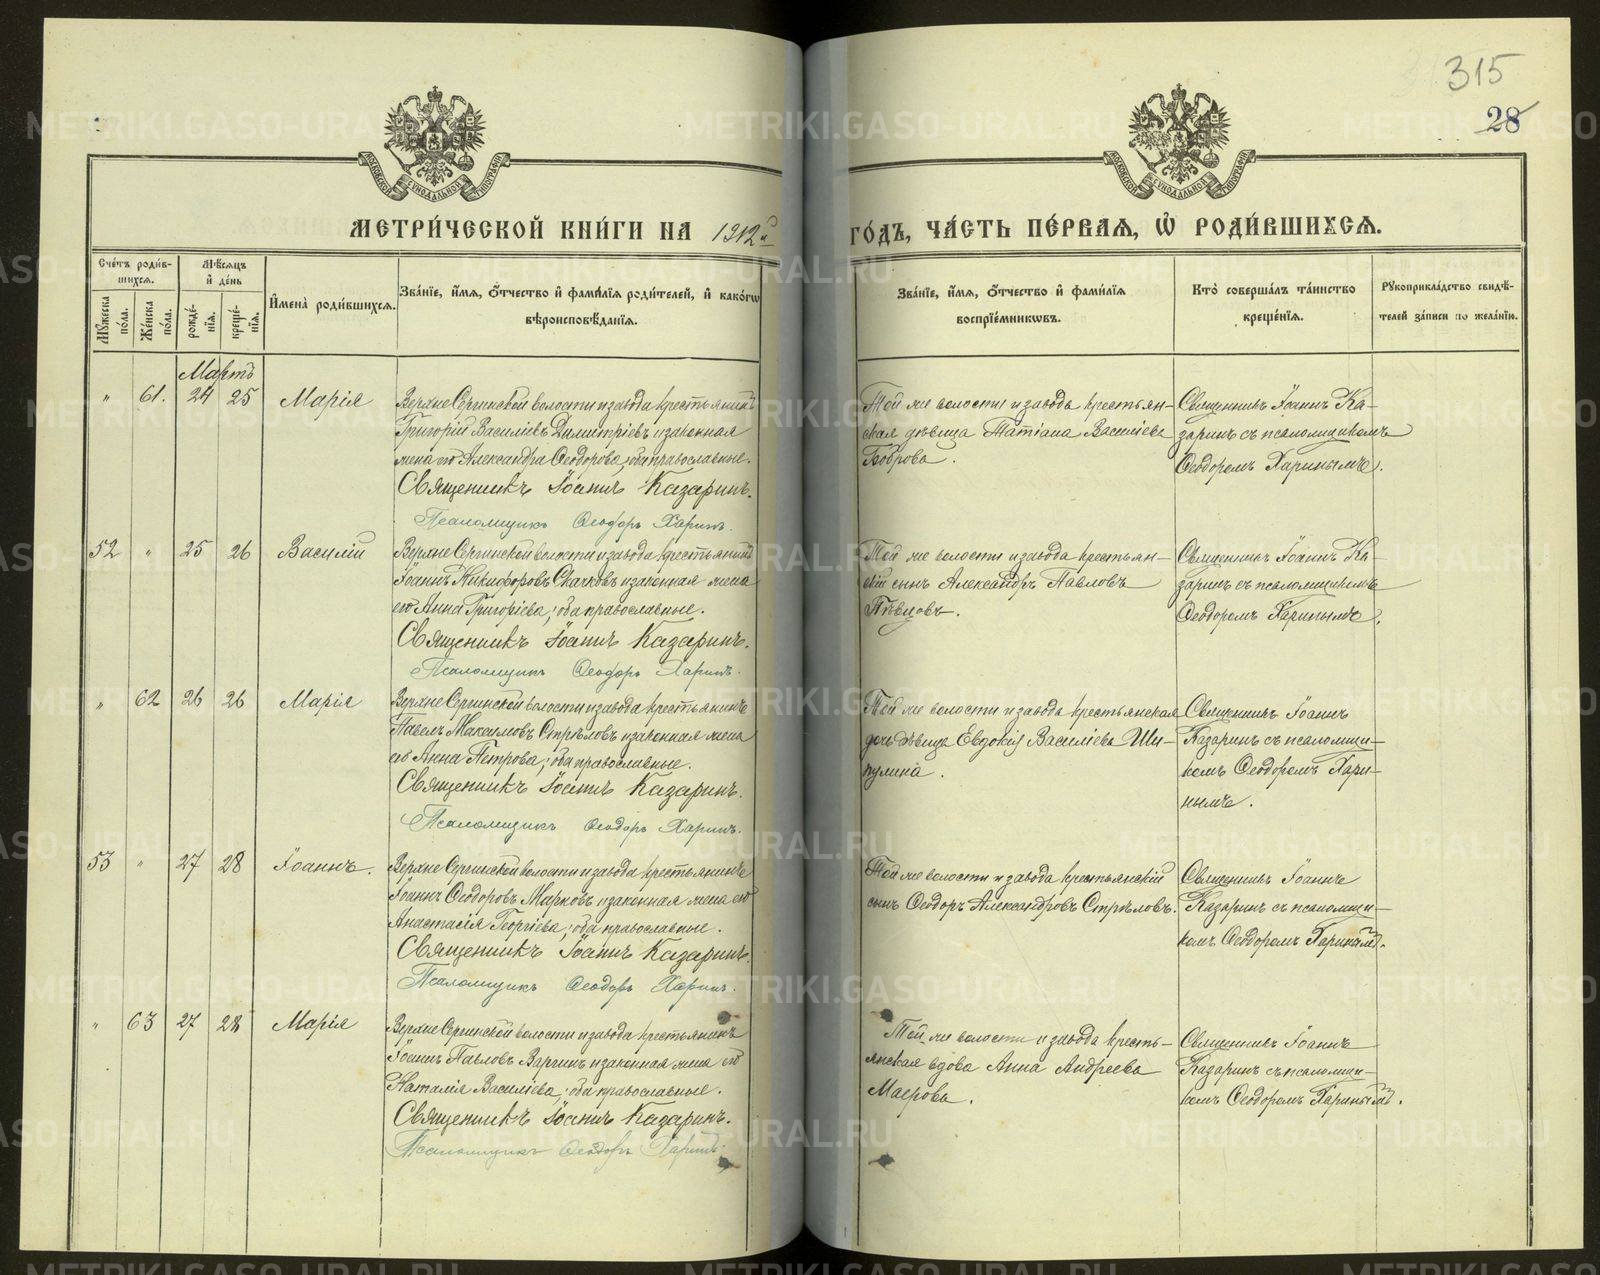 315
28
МОСКОВСКОЙ СѴНОДАЛЬНОЙ ТИПОГРАФІИ
МОСКОВСКОЙ СѴНОДАЛЬНОЙ ТИПОГРАФІИ
МЕТРИ́ЧЕСКОЙ КНИ́ГИ НА 1912й
ГО́ДЪ, ЧА́СТЬ ПЕ́РВАѦ, Ѡ҆ РОДИ́ВШИХСѦ.
Сче́тъ роди́в-
шихсѧ.
Мꙋ́жеска по́ла.
Же́нска по́ла.
Мѣ́сѧцъ
и҆ де́нь
рожде́-
нїѧ.
креще́-
нїѧ.
И҆мена̀ роди́вшихсѧ.
Зва́нїе, и҆́мѧ, ѻ҆́тчество и҆ фами́лїѧ роди́телей, и҆ како́гѡ
вѣроисповѣ́данїѧ.
Зва́нїе, и҆́мѧ, ѻ҆́тчество и҆ фами́лїѧ
воспрїе́мникѡвъ.
Кто̀ соверша́лъ та́инство
креще́нїѧ.
Рꙋкоприкла́дство свидѣ́-
телей за́писи по жела́нїю.
Мартъ
" 61. 24 25 Марія
Верхне Сергинской волости и завода крестьянинъ
Григорій Василіевъ Димитріевъ и законная
жена его Александра Ѳеодорова, оба православные.
Священникъ Іоаннъ Казаринъ.
Псаломщикъ Ѳеодоръ Харинъ.
Той же волости и завода крестьян-
ская дѣвица Татіана Василіева
Боброва.
Священникъ Іоаннъ Ка-
заринъ съ псаломщикомъ
Ѳеодоромъ Харинымъ.
52 " 25 26 Василій
Верхне Сергинской волости и завода крестьянинъ
Іоаннъ Никифоровъ Скачковъ и законная жена
его Анна Григоріева, оба православные.
Священникъ Іоаннъ Казаринъ.
Псаломщикъ Ѳеодоръ Харинъ.
Той же волости и завода крестьян-
скій сынъ Александръ Павловъ
Пѣвцовъ.
Священникъ Іоаннъ Ка-
заринъ съ псаломщикомъ
Ѳеодоромъ Харинымъ.
" 62 26 26 Марія
Верхне Сергинской волости и завода крестьянинъ
Павелъ Максимовъ Стрѣловъ и законная жена
его Анна Петрова, оба православные.
Священникъ Іоаннъ Казаринъ.
Псаломщикъ Ѳеодоръ Харинъ.
Той же волости и завода крестьянская
дочь дѣвица Евдокія Василіева Ши-
пулина.
Священникъ Іоаннъ
Казаринъ съ псаломщи-
комъ Ѳеодоромъ Хари-
нымъ.
53 " 27 28 Іоаннъ.
Верхне Сергинской волости и завода крестьянинъ
Іоаннъ Ѳеодоровъ Марковъ и законная жена его
Анастасія Георгіева, оба православные.
Священникъ Іоаннъ Казаринъ.
Псаломщикъ Ѳеодоръ Харинъ.
Той же волости и завода крестьянскій
сынъ Ѳеодоръ Александровъ Стрѣловъ.
Священникъ Іоаннъ
Казаринъ съ псаломщи-
комъ Ѳеодоромъ Харинымъ.
" 63 27 28 Марія
Верхне Сергинской волости и завода крестьянинъ
Іоаннъ Павловъ Варгинъ и законная жена его
Наталія Василіева, оба православные.
Священникъ Іоаннъ Казаринъ.
Псаломщикъ Ѳеодоръ Харинъ.
Той же волости и завода кресть-
янская вдова Анна Андреева
Маерова.
Священникъ Іоаннъ
Казаринъ съ псаломщи-
комъ Ѳеодоромъ Харинымъ.
METRIKI.GASO-URAL.RU